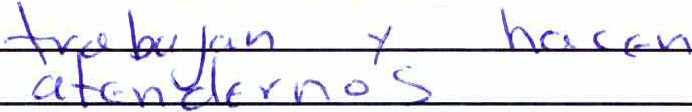 trabajan y hacen
atendernos